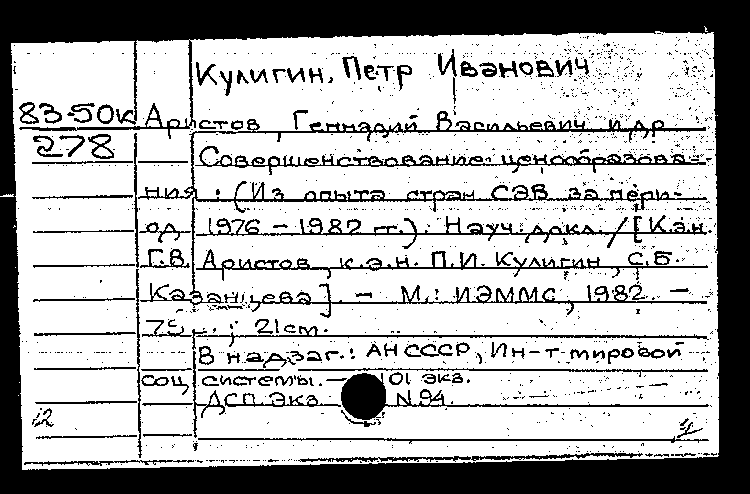 Кулигин, Петр Иванович
83-50к Аристов, Геннадий Васильевич и др
278 Совершенствование ценообразова-
ния : (Из опыта стран СЭВ за пери-
од 1976 - 1982 гг.). Науч. докл. / [К.э.н.
Г.В. Аристов, к.э.н. П.И. Кулигин, С.Б.
Казанцева]. - М.: ИЭММС, 1982. -
75 с. ; 21см.
В надзаг.: АН СССР, Ин-т мировой
соц системы. - 101 экз.
ДСП. Экз. N 94.
12